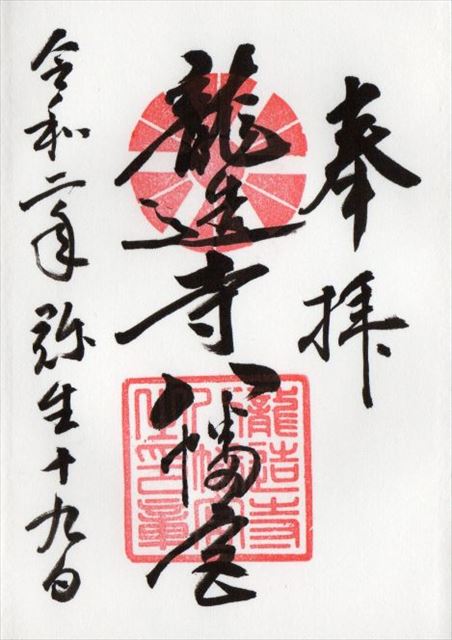 奉拝
龍造寺八幡宮
令和二年 弥生十九日
龍造寺
八幡宮